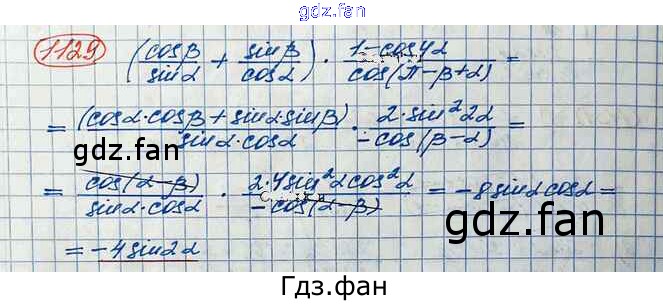 gdz.fan
1129 (cosβ/sinα + sinβ/cosα) · 1-cos4α/cos(π-β+α) =
= (cosα·cosβ+sinα sinβ)/sinα·cosα · 2·sin²2α/-cos(β-α) =
gdz.fan
= cos(α-β)/sinα·cosα · 2·4sin²αcos²α/-cos(α-β) = -8sinαcosα =
= -4sin2α
gdz.fan
Гдз.фан